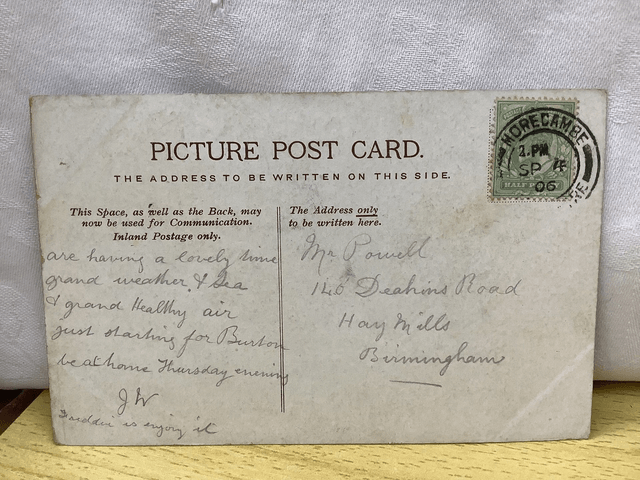 PICTURE POST CARD.
THE ADDRESS TO BE WRITTEN ON THIS SIDE.
This Space, as well as the Back, may
now be used for Communication.
Inland Postage only.
The Address only
to be written here.
are having a lovely time
grand weather, & Sea
& grand Healthy air
just starting for Burton
be at home Thursday evening
JW
is enjoy it
Mr Powell
140 Deakins Road
Hay Mills
Birmingham
MORECAMBE
1.PM
SP 4
06
HALF